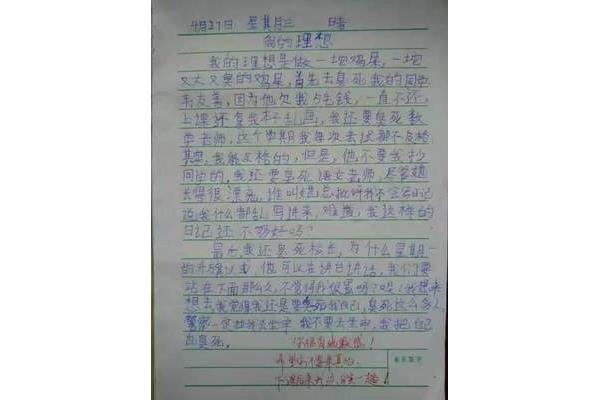 4月27日 星期三 晴
我的理想
我的理想是做一坨鸡屎,一坨
又大又臭的鸡屎,首先去臭死我的同学
友善,因为他欠我5毛钱,一直不还,
上课还拿我本子乱画,我还要臭死数
学老师,这个学期我每次考试都不及格
其实,我能及格的,但是,他不要我抄
同学的,我还要臭死语文老师,尽管她
长得很漂亮,谁叫她总批评我不会写日记
说我什么都乱写进来,难道,我这样的
日记还不够好吗?
最后,我还臭死校长,为什么星期一
的升旗仪式,他可以在讲台讲话,我们要
站在下面那么久,不觉得
想去我觉得我还是要臭死我自己,臭死这么多人
警察一定把我去坐牢 我不要去坐牢,我把自己
臭死。
你很有
希望你不要来真的
下课后来办公室一趟!